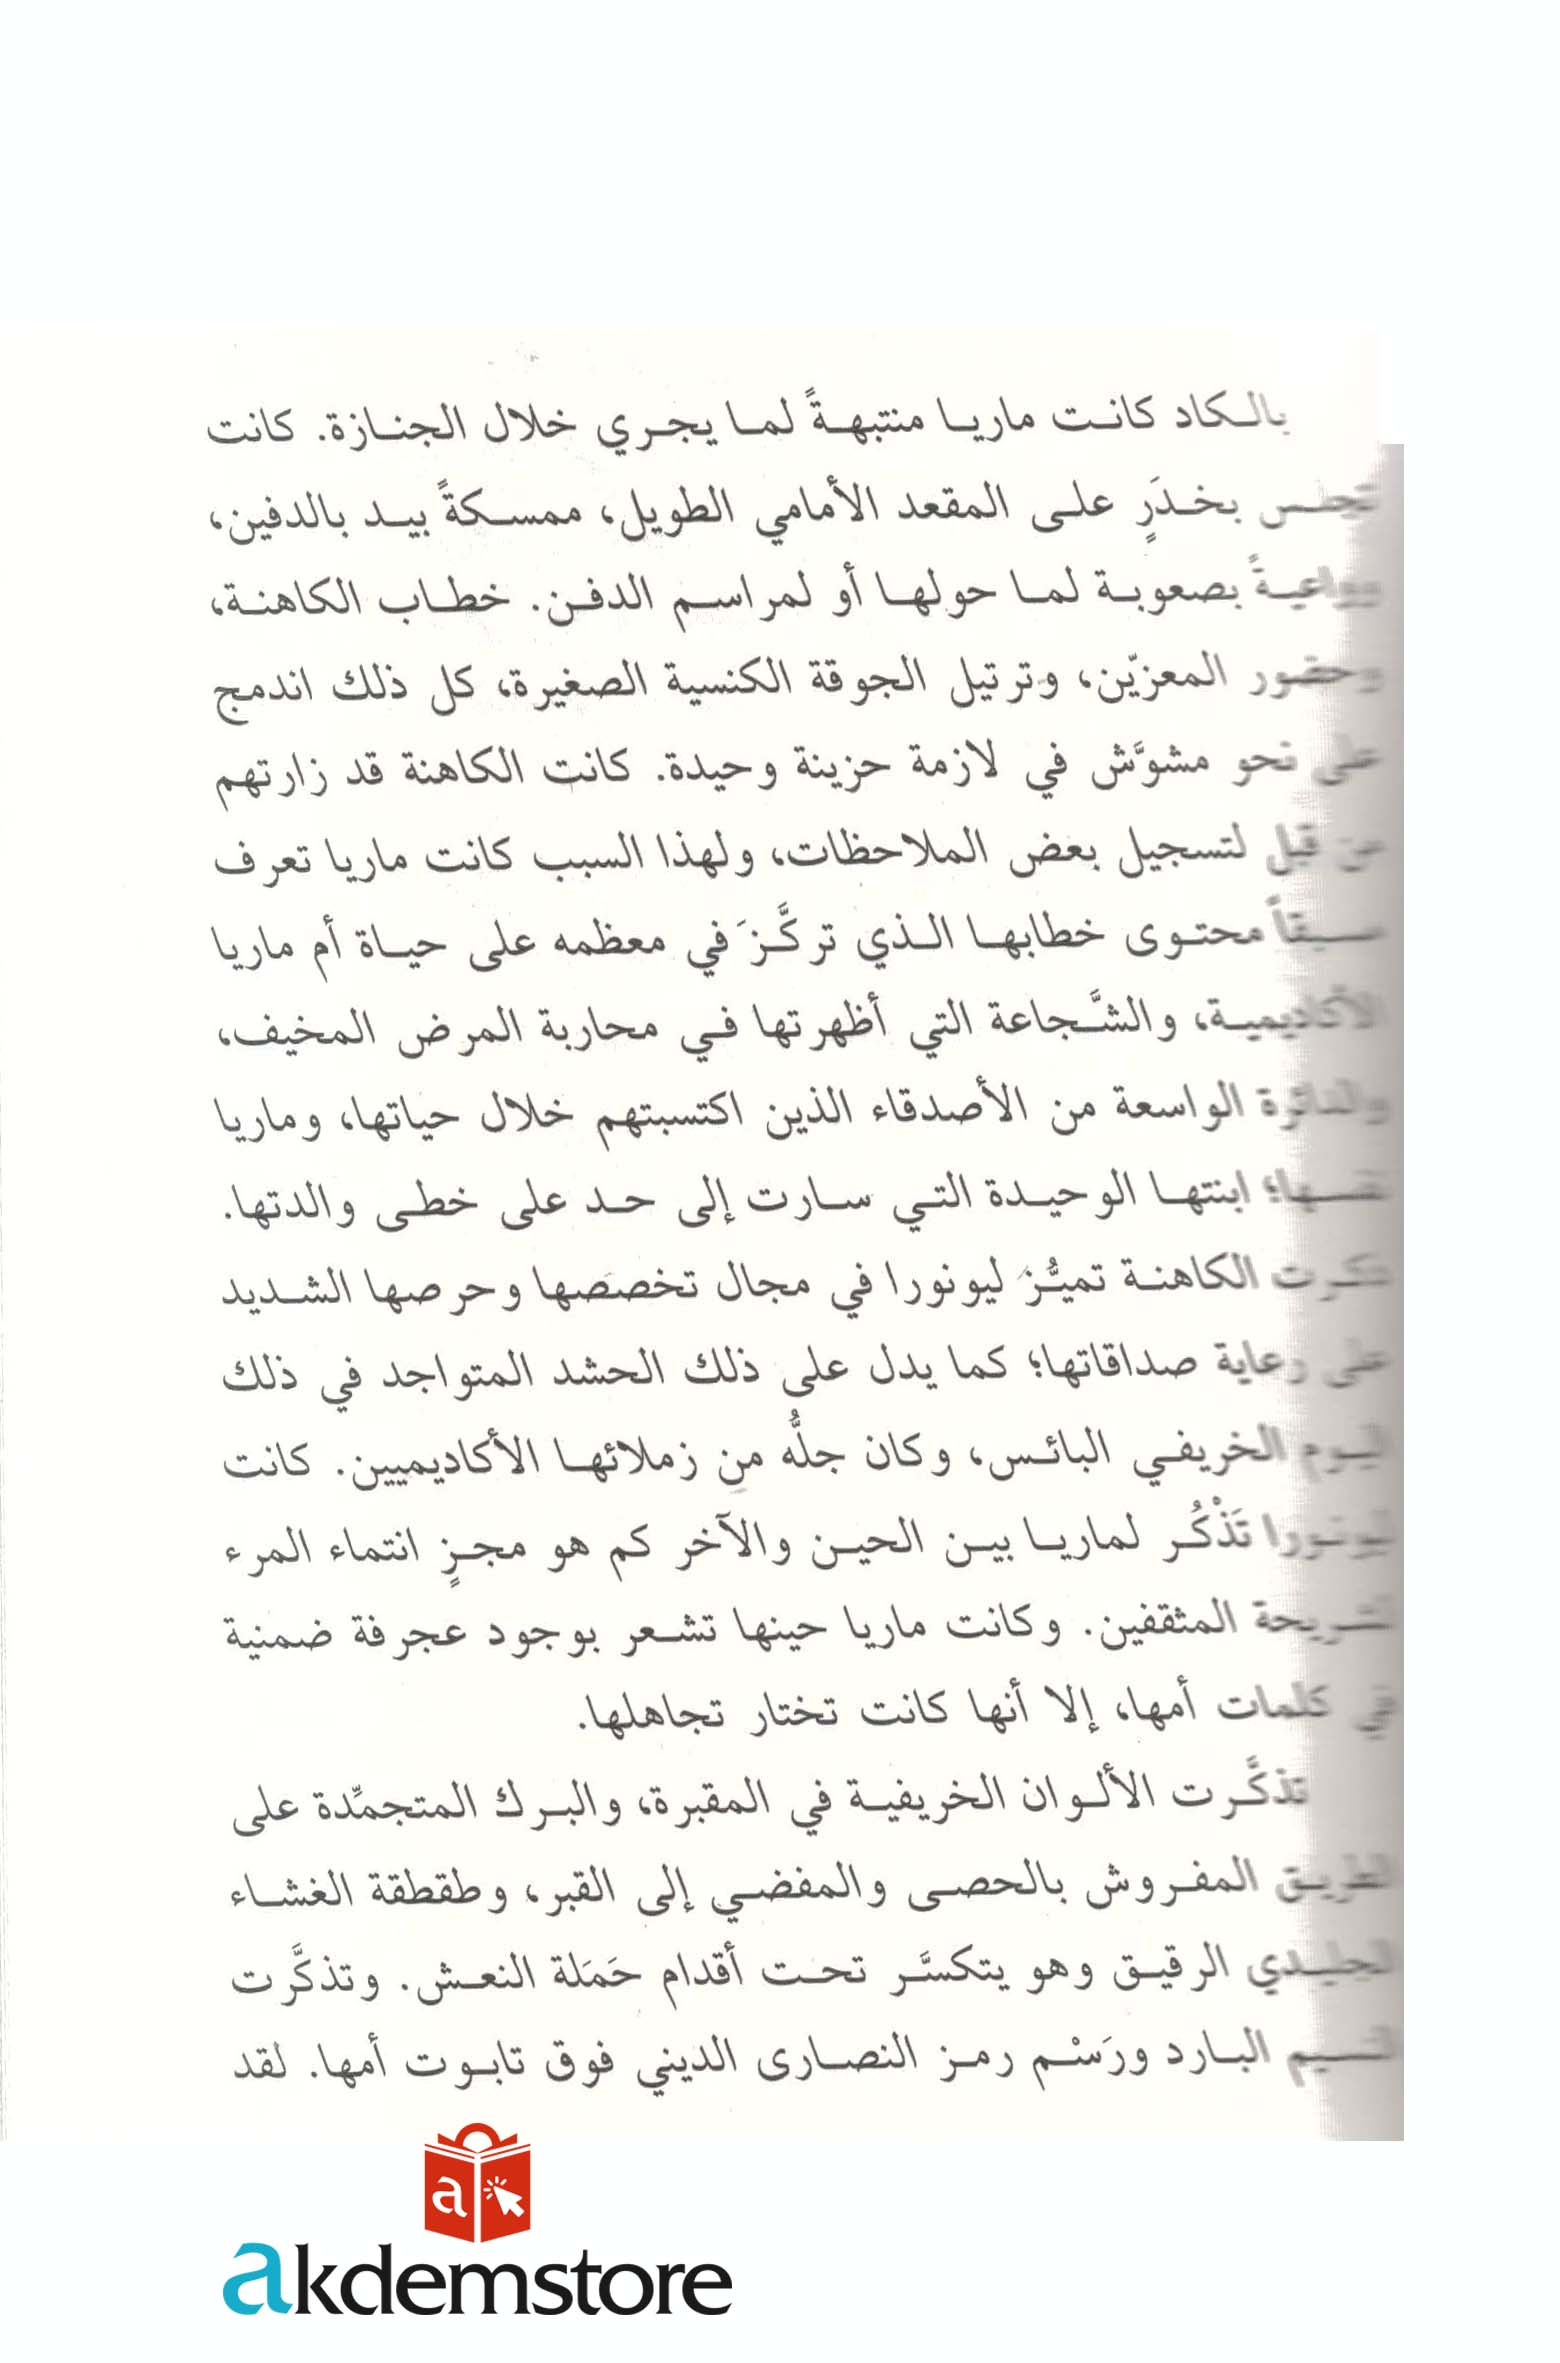 بالكاد كانت ماريا منتبهةً لما يجري خلال الجنازة. كانت
تجلس بخدَرٍ على المقعد الأمامي الطويل، ممسكةً بيد بالدفين،
وواعيةً بصعوبة لما حولها أو لمراسم الدفن. خطاب الكاهنة،
وحضور المعزّين، وترتيل الجوقة الكنسية الصغيرة، كل ذلك اندمج
على نحو مشوَّش في لازمة حزينة وحيدة. كانت الكاهنة قد زارتهم
من قبل لتسجيل بعض الملاحظات، ولهذا السبب كانت ماريا تعرف
مسبقاً محتوى خطابها الذي تركَّزَ في معظمه على حياة أم ماريا
الأكاديمية، والشَّجاعة التي أظهرتها في محاربة المرض المخيف،
والدائرة الواسعة من الأصدقاء الذين اكتسبتهم خلال حياتها، وماريا
نفسها؛ ابنتها الوحيدة التي سارت إلى حد على خطى والدتها.
ذكرت الكاهنة تميُّزَ ليونورا في مجال تخصصها وحرصها الشديد
على رعاية صداقاتها؛ كما يدل على ذلك الحشد المتواجد في ذلك
اليوم الخريفي البائس، وكان جلُّه من زملائها الأكاديميين. كانت
ليونورا تَذْكُر لماريا بين الحين والآخر كم هو مجزٍ انتماء المرء
لشريحة المثقفين. وكانت ماريا حينها تشعر بوجود عجرفة ضمنية
في كلمات أمها، إلا أنها كانت تختار تجاهلها.
تذكَّرت الألوان الخريفية في المقبرة، والبرك المتجمّدة على
الطريق المفروش بالحصى والمفضي إلى القبر، وطقطقة الغشاء
الجليدي الرقيق وهو يتكسَّر تحت أقدام حَمَلة النعش. وتذكَّرت
النسيم البارد ورَسْم رمز النصارى الديني فوق تابوت أمها. لقد
a
akdemstore